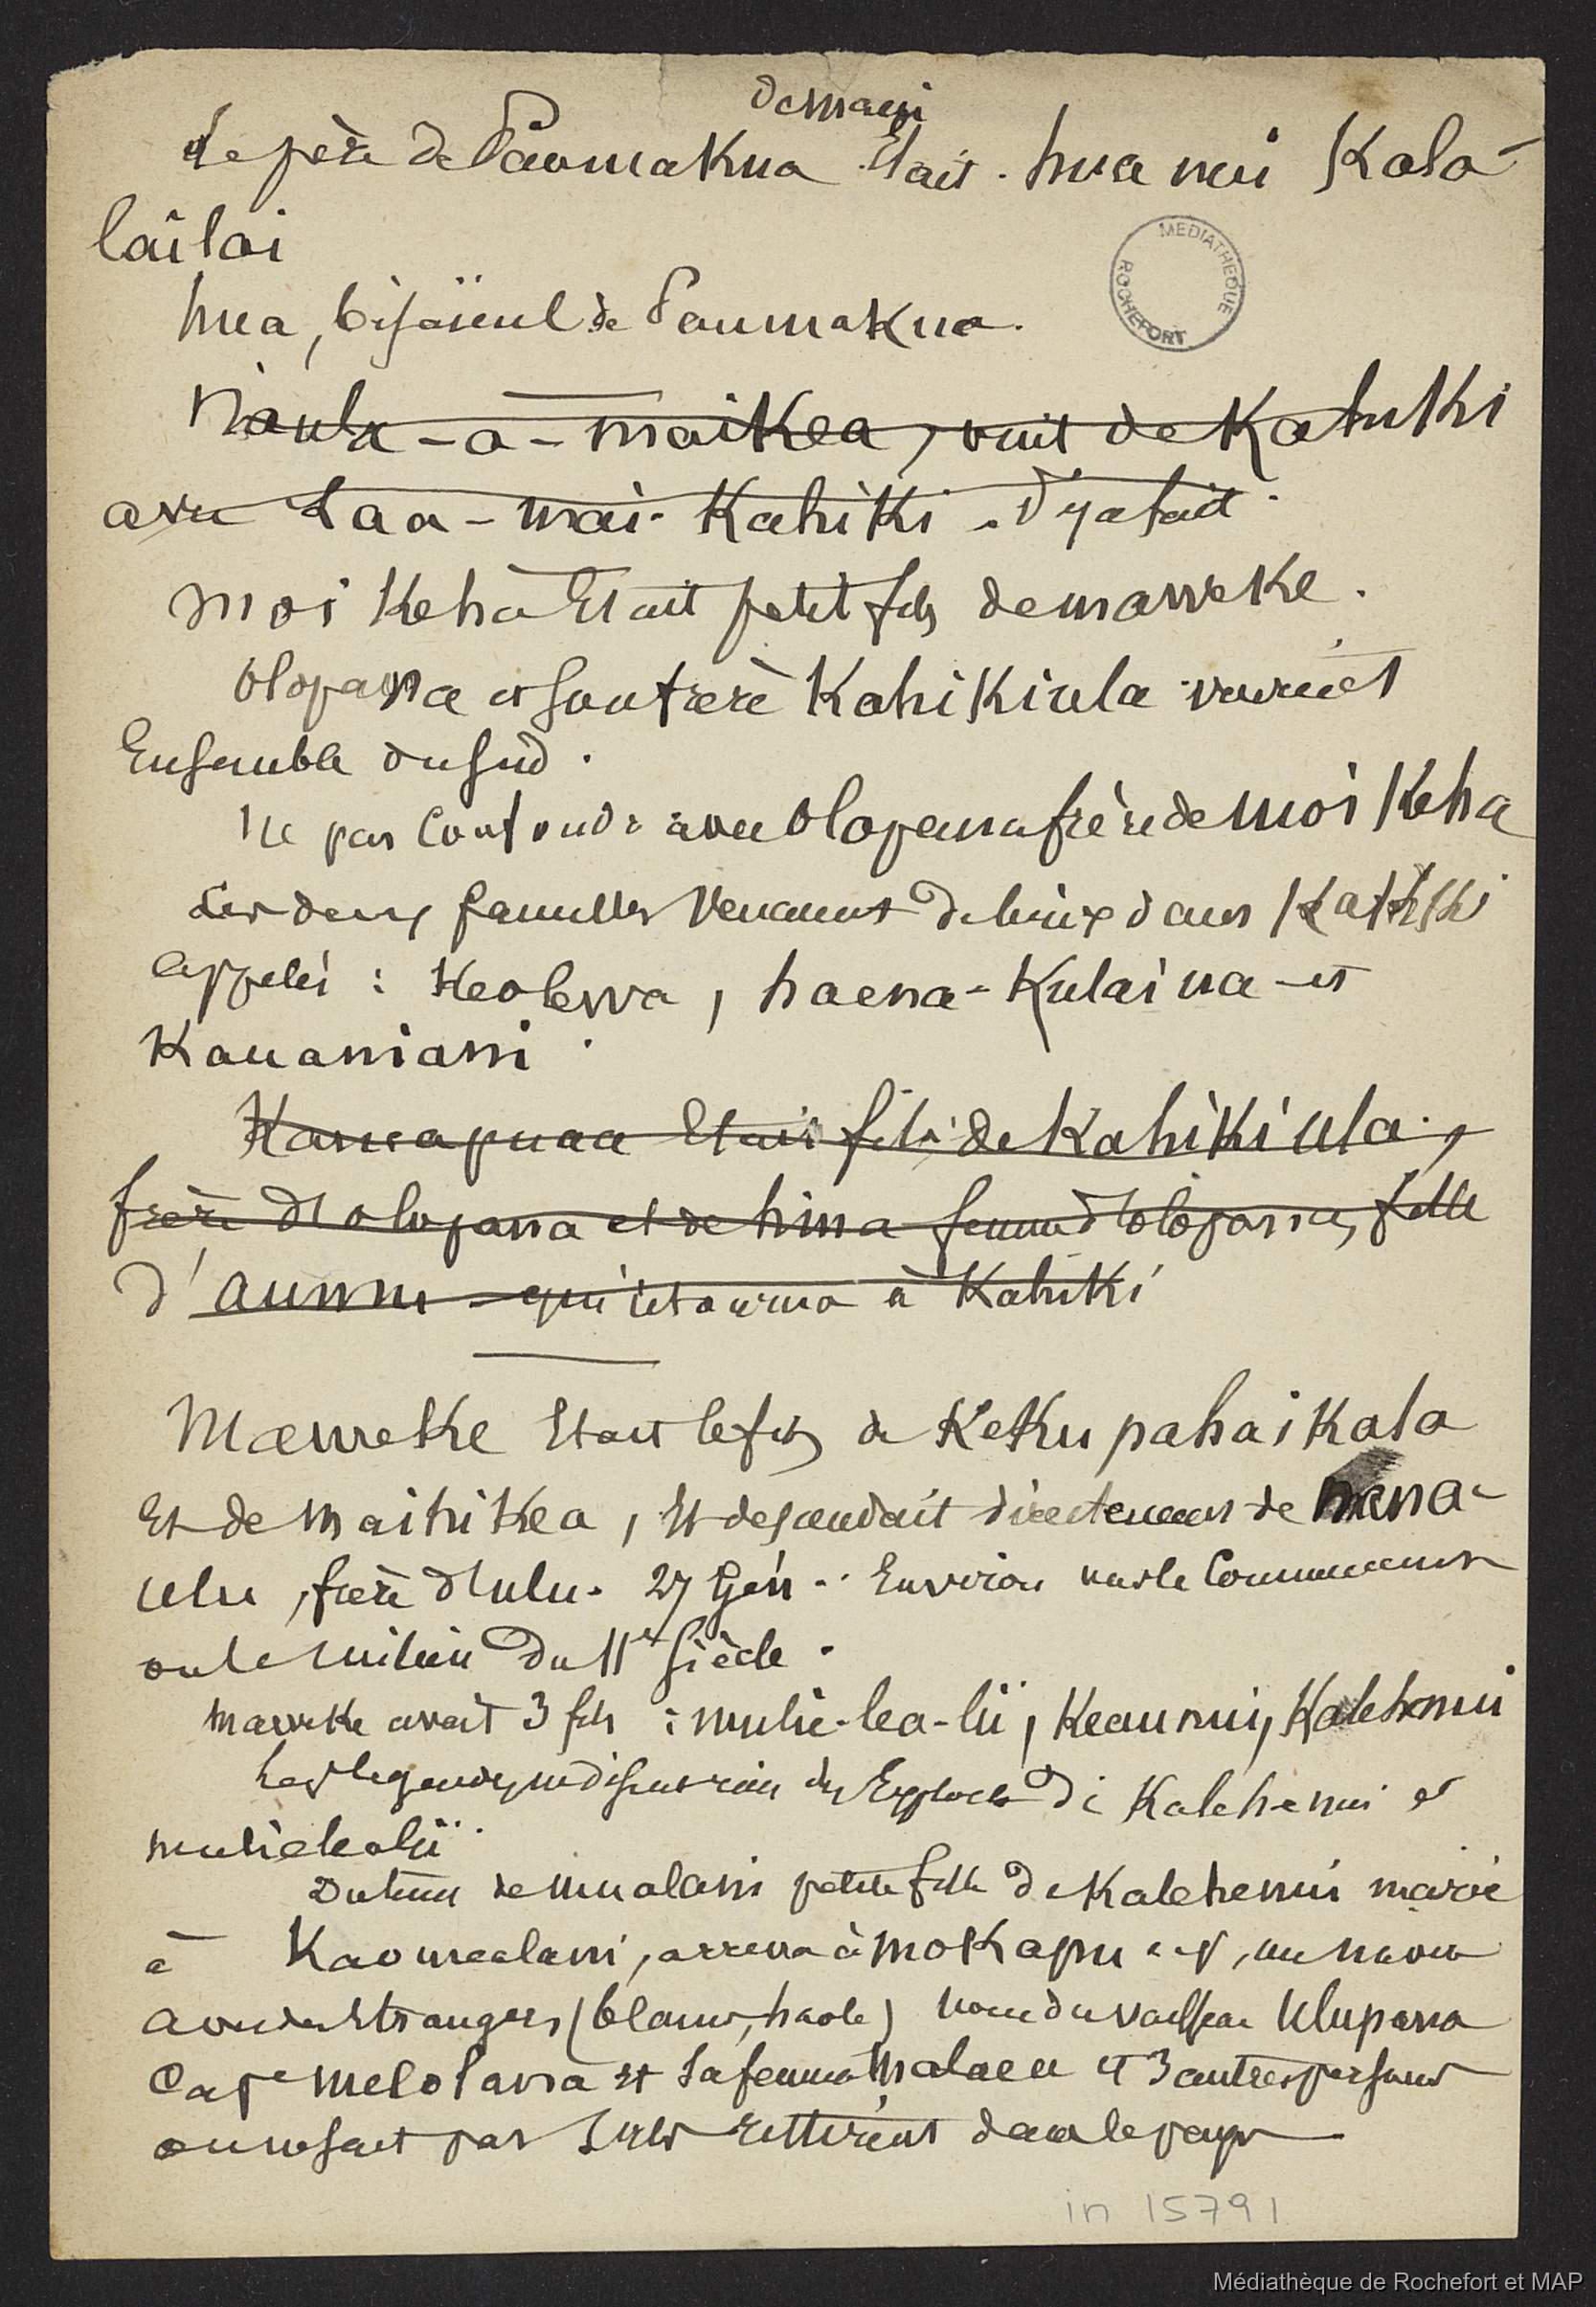 de maui
Le père de Paumakua Etait hua nui Kala-
laïlai
hua, bisaïeul de Paumakua.
Naula-a-maikea, vint de Kahiki
avec Laa-mai-Kahiki. D'y abait
Moi Keha Etait petit fils de maweke.
Olopana et son frère Kahikiula vinrent
Ensemble du Sud.
Ne pas confondre avec Olopana frère de Moi Keha
Les deux familles venaient de lieux dans Kahiki
appelés : Keolewa, haena-Kulaina et
Kauaniani.
Kamapuaa Etait fils de Kahikiula,
frère d'olopana et de hina femme d'olopana, fille
d'aumu qui retourna à Kahiki
Maweke Etait le fils de KeKupahaikala
Et de maihikea, Et descendait directement de nana-
ulu, frère d'ulu. 27 Gén. Environ vers le Commencement
ou le milieu du 11e Siècle.
maweke avait 3 fils : mulie-lea-lii, Keaunui, Kalehenui
Les legendes ne disent rien des Exploits de Kalehenui et
mulielealii.
Du temps de mualani petite fille de Kalehenui mariée
à Kaomealani, arriva à moKapu un navire
avec des Etrangers (blancs, haole) nom du vaisseau Ulupana
Cape Melolana et Sa femme Malaea et 3 autres personnes
on ne sait pas S'ils restèrent dans le pays
MEDIATHEQUE
ROCHEFORT
in 15791
Médiathèque de Rochefort et MAP